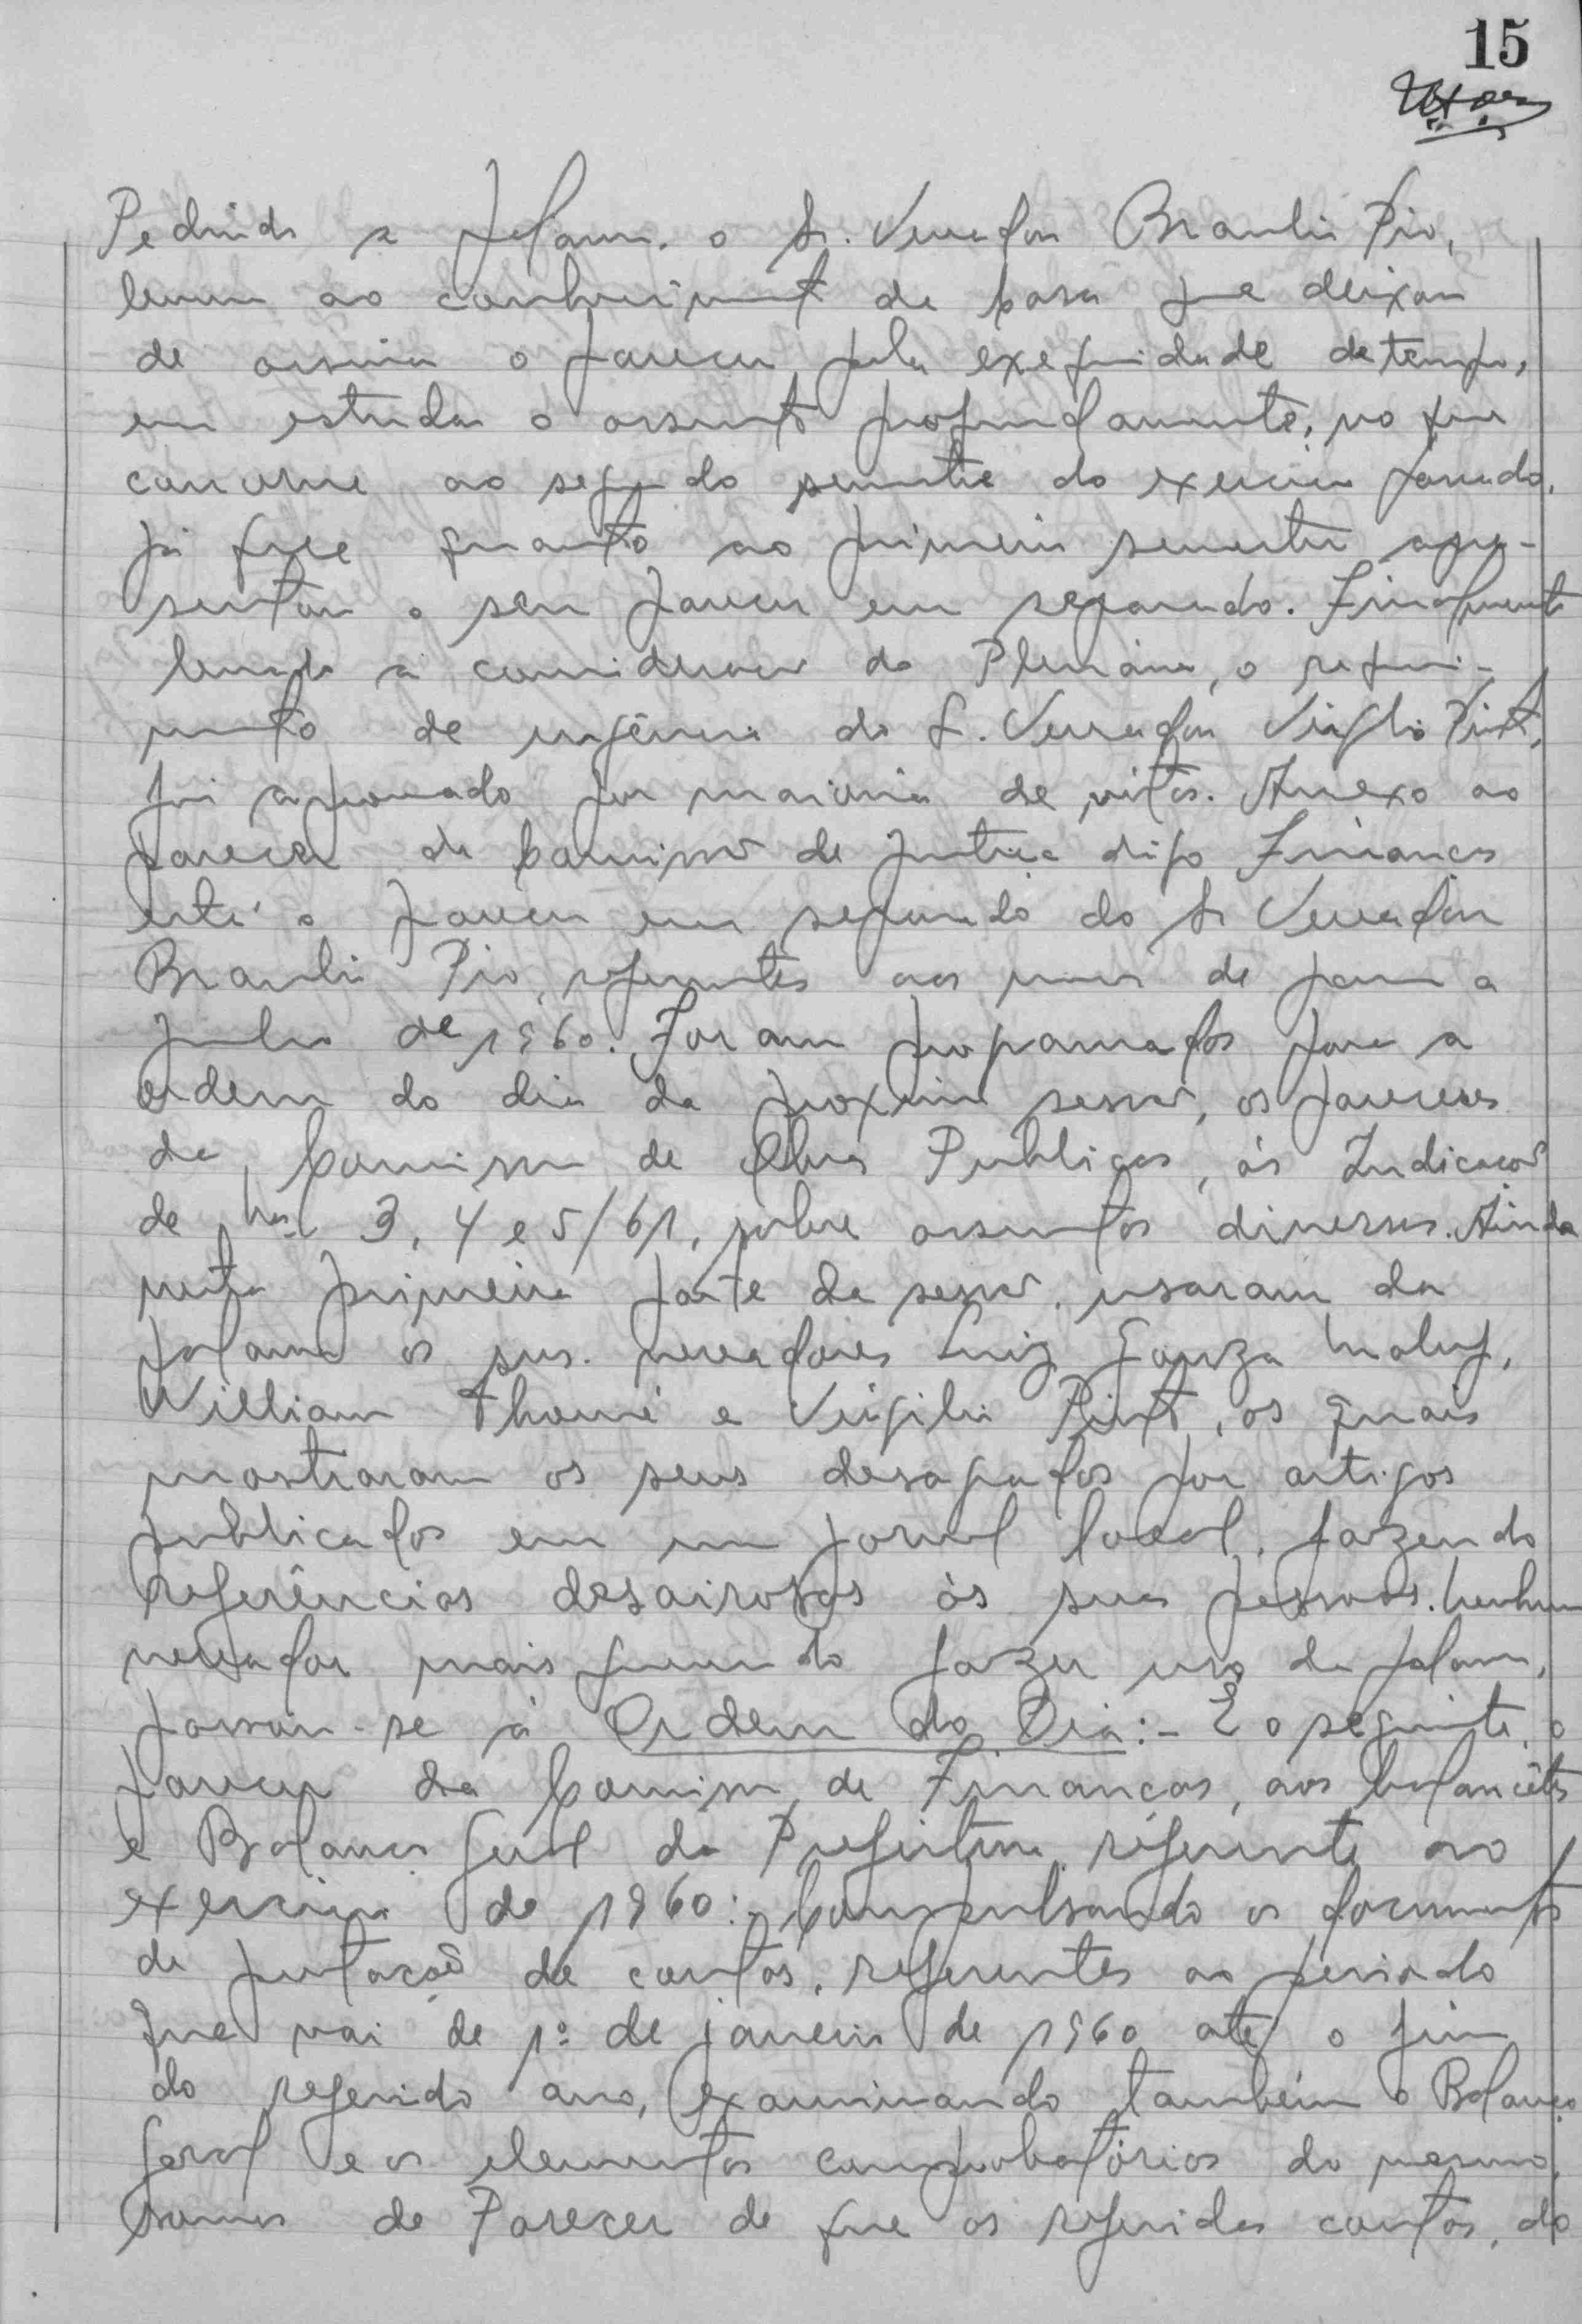 15
Pedindo a palavra, o Sr. Vereador Braulio Pio,
levou ao conhecimento da Casa que deixou
de assinar o parecer pela exeguidade de tempo,
em estudar o assunto profundamente, no que
concerne ao segundo semestre do exercicio passado,
já que quanto ao primeiro semestre apre-
sentou o seu parecer em separado. Finalmente
levado à consideração do Plenário, o requeri-
mento de urgência do S. Vereador Virgilio Pinto,
foi aprovado por maioria de votos. Anexo ao
parecer da Comissão de Justiça digo Finanças
está o parecer em separado do Sr Vereador
Braulio Pio, referentes aos meses de janeiro a
junho de 1960. Foram programados para a
ordem do dia da proxima sessão, os pareceres
da Comissão de Obras Publicas, às Indicações
de nºs 3, 4 e 5/61, sobre assuntos diversos. Ainda
nesta primeira parte da sessão, usaram da
palavra os srs. vereadores Luiz Gonzaga Maluf,
William Thomé e Virgilio Pinto, os quais
mostraram os seus desagrados por artigos
publicados em um jornal local, fazendo
referências desairosas às suas pessoas. Nenhum
vereador mais querendo fazer uso da palavra,
passou-se à Ordem do Dia:- É o seguinte o
parecer da Comissão de Finanças, aos balancêtes
e Balanço Geral da Prefeitura referente ao
exercicio de 1960:- Compulsando os documentos
de prestação de contas, referentes ao periodo
que vai de 1º de janeiro de 1960 até o fim
do referido ano, examinando também o Balanço
Geral e os elementos comprobatórios do mesmo,
somos de Parecer de que as referidas contas, do